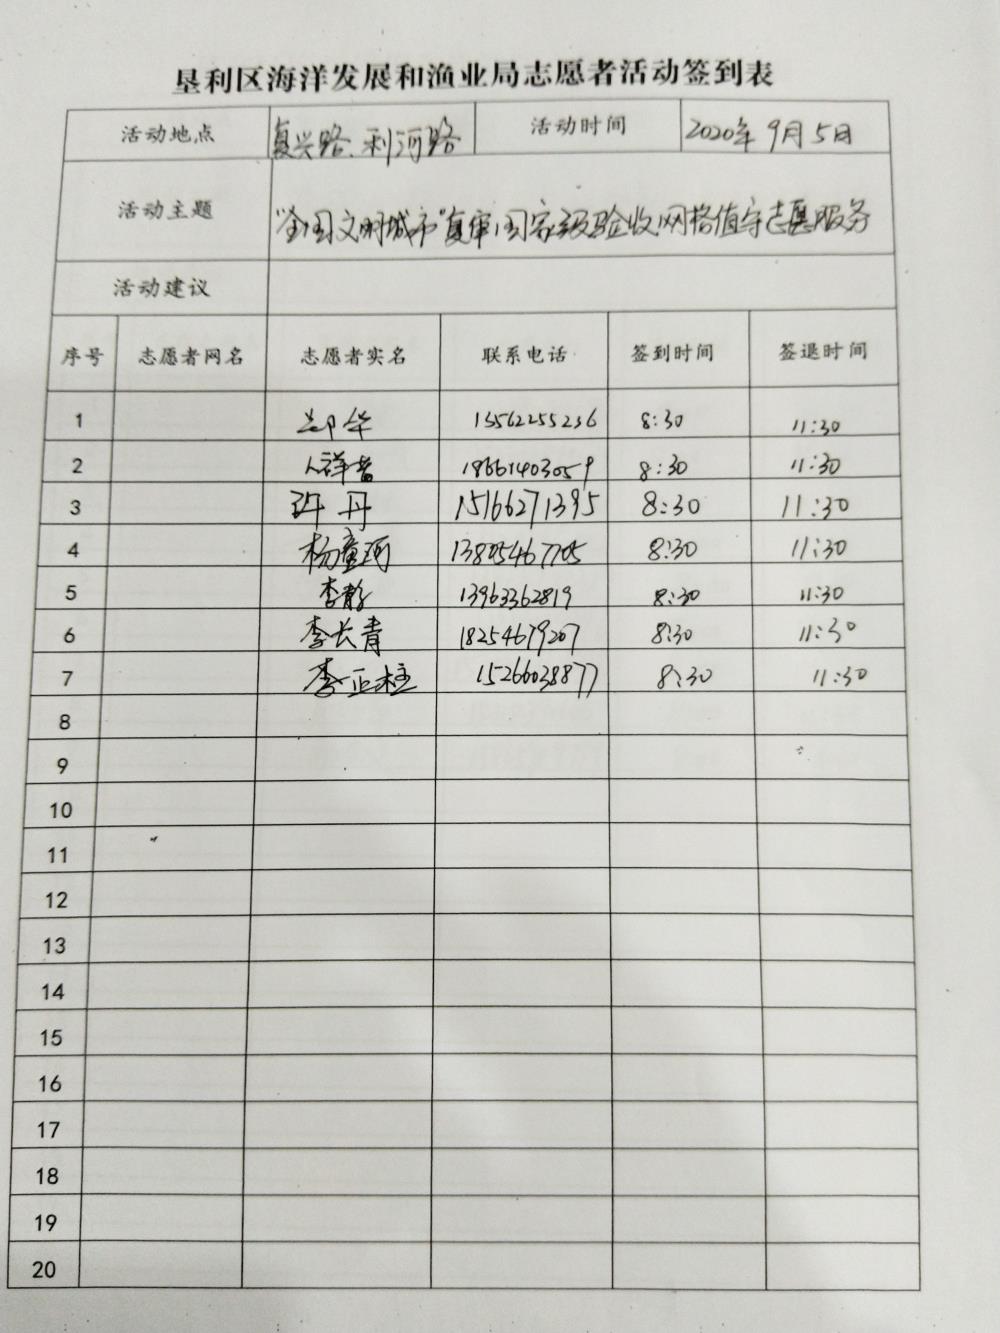 垦利区海洋发展和渔业局志愿者活动签到表
活动地点 复兴路、利河路 活动时间 2020年9月5日
活动主题 "全国文明城市"复审国家级验收网格值守志愿服务
活动建议
序号 志愿者网名 志愿者实名 联系电话 签到时间 签退时间
1 华 15562255236 8:30 11:30
2 18661403059 8:30 11:30
3 许丹 15166271395 8:30 11:30
4 杨童珂 13805467705 8:30 11:30
5 李静 13963362819 8:30 11:30
6 李长青 18254679207 8:30 11:30
7 李正柱 15266038877 8:30 11:30
8
9
10
11
12
13
14
15
16
17
18
19
20